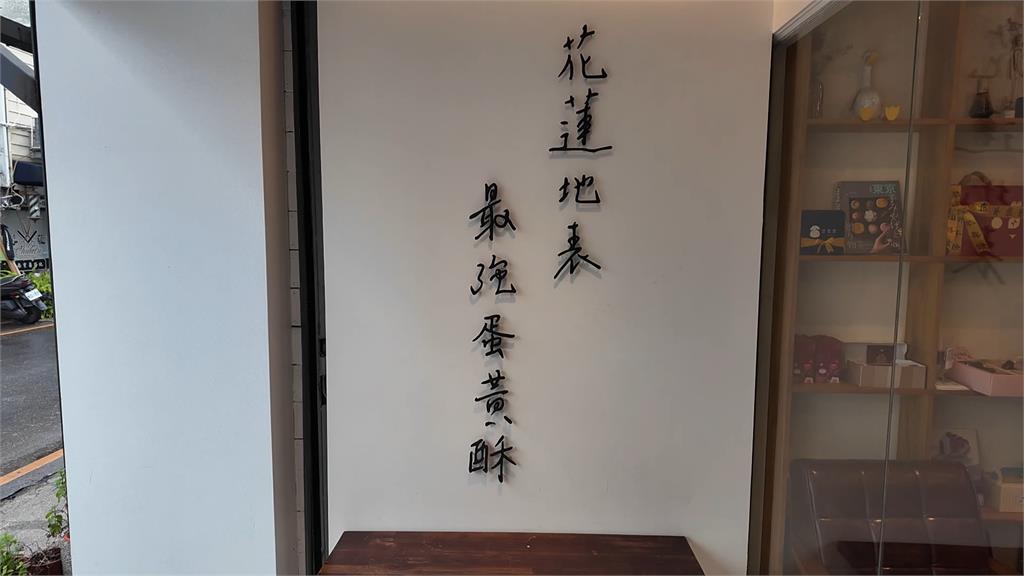 花蓮地表
最強蛋黃酥
東京